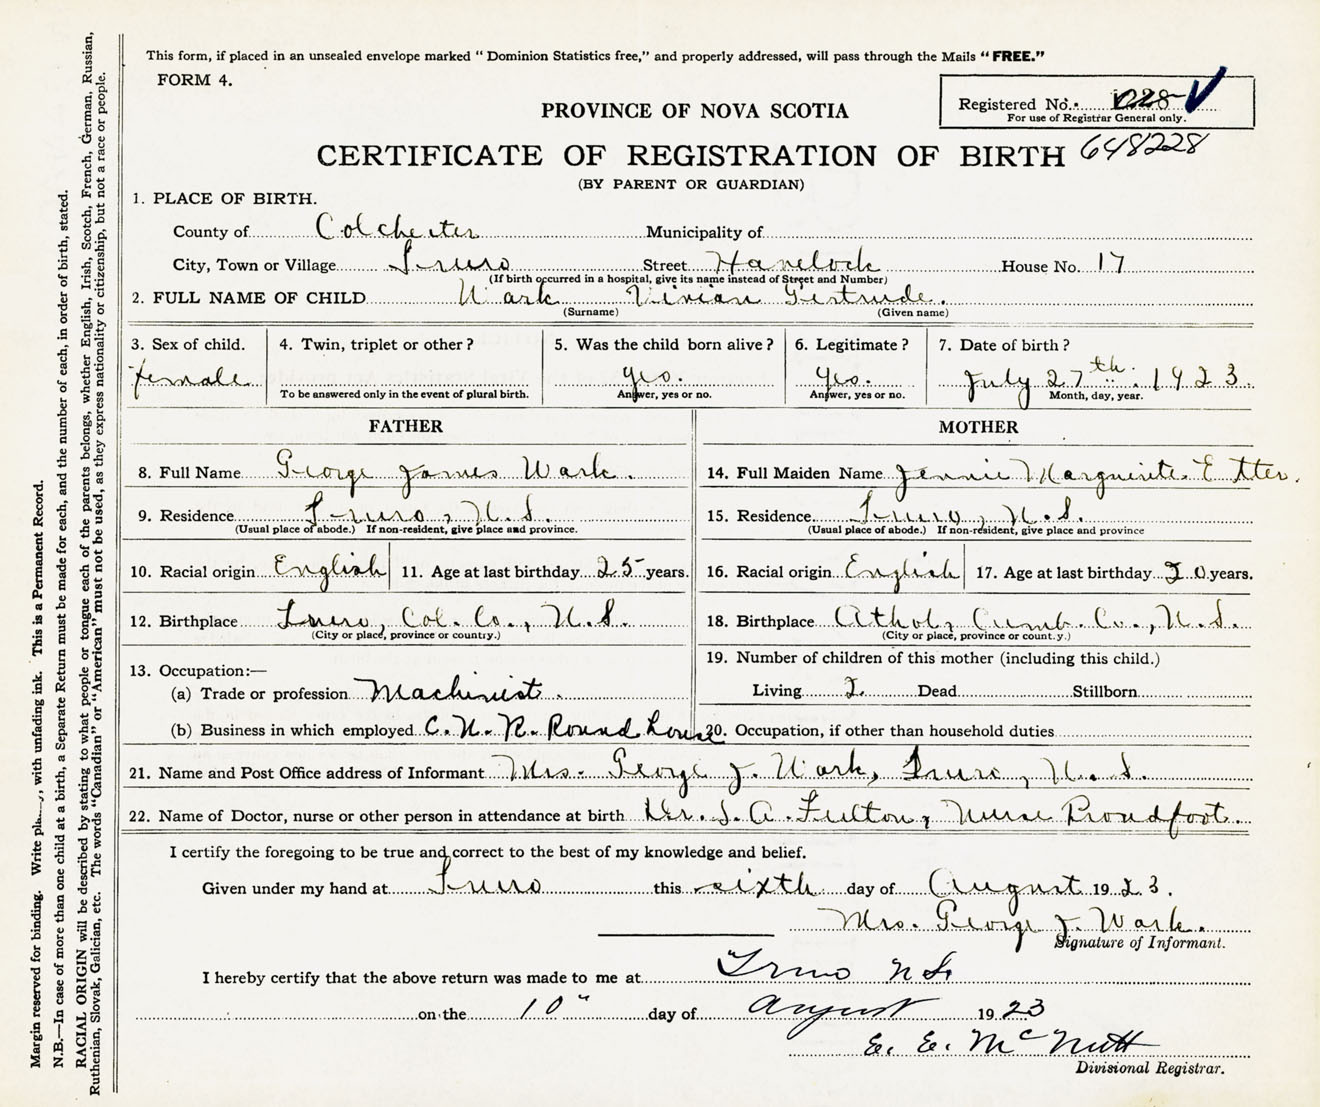 This form, if placed in an unsealed envelope marked " Dominion Statistics free," and properly addressed, will pass through the Mails " FREE."
FORM 4.
Registered No. 028
For use of Registrar General only.
PROVINCE OF NOVA SCOTIA
648228
CERTIFICATE OF REGISTRATION OF BIRTH
(BY PARENT OR GUARDIAN)
1. PLACE OF BIRTH.
County of Colchester Municipality of
City, Town or Village Truro Street Havelock House No. 17
(If birth occurred in a hospital, give its name instead of Street and Number)
2. FULL NAME OF CHILD Wark Vivian Gertrude.
(Surname) (Given name)
3. Sex of child. 4. Twin, triplet or other ? 5. Was the child born alive ? 6. Legitimate ? 7. Date of birth ?
female yes. yes. July 27th. 1923.
To be answered only in the event of plural birth. Answer, yes or no. Answer, yes or no. Month, day, year.
FATHER MOTHER
8. Full Name George James Wark. 14. Full Maiden Name Jennie Marguerite Etter.
9. Residence Truro, N.S. 15. Residence Truro, N.S.
(Usual place of abode.) If non-resident, give place and province. (Usual place of abode.) If non-resident, give place and province
10. Racial origin English 11. Age at last birthday 25 years. 16. Racial origin English 17. Age at last birthday 20 years.
12. Birthplace Truro, Col. Co., N.S. 18. Birthplace Athol, Cumb. Co., N.S.
(City or place, province or country.) (City or place, province or country.)
19. Number of children of this mother (including this child.)
13. Occupation:—
(a) Trade or profession Machinist. Living 2 Dead Stillborn
(b) Business in which employed C.N.R. Round house 20. Occupation, if other than household duties
21. Name and Post Office address of Informant Mrs. George J. Wark, Truro, N.S.
22. Name of Doctor, nurse or other person in attendance at birth Dr. S. A. Fulton, Nurse Proudfoot.
I certify the foregoing to be true and correct to the best of my knowledge and belief.
Given under my hand at Truro this sixth day of August 1923.
Mrs. George J. Wark.
Signature of Informant.
I hereby certify that the above return was made to me at Truro N S.
on the 10" day of August 1923
E. E. McNutt
Divisional Registrar.
Margin reserved for binding. Write , with unfading ink. This is a Permanent Record.
N.B.—In case of more than one child at a birth, a Separate Return must be made for each, and the number of each, in order of birth, stated.
RACIAL ORIGIN will be described by stating to what people or tongue each of the parents belongs, whether English, Irish, Scotch, French, German, Russian,
Ruthenian, Slovak, Galician, etc. The words "Canadian" or "American" must not be used, as they express nationality or citizenship, but not a race or people.